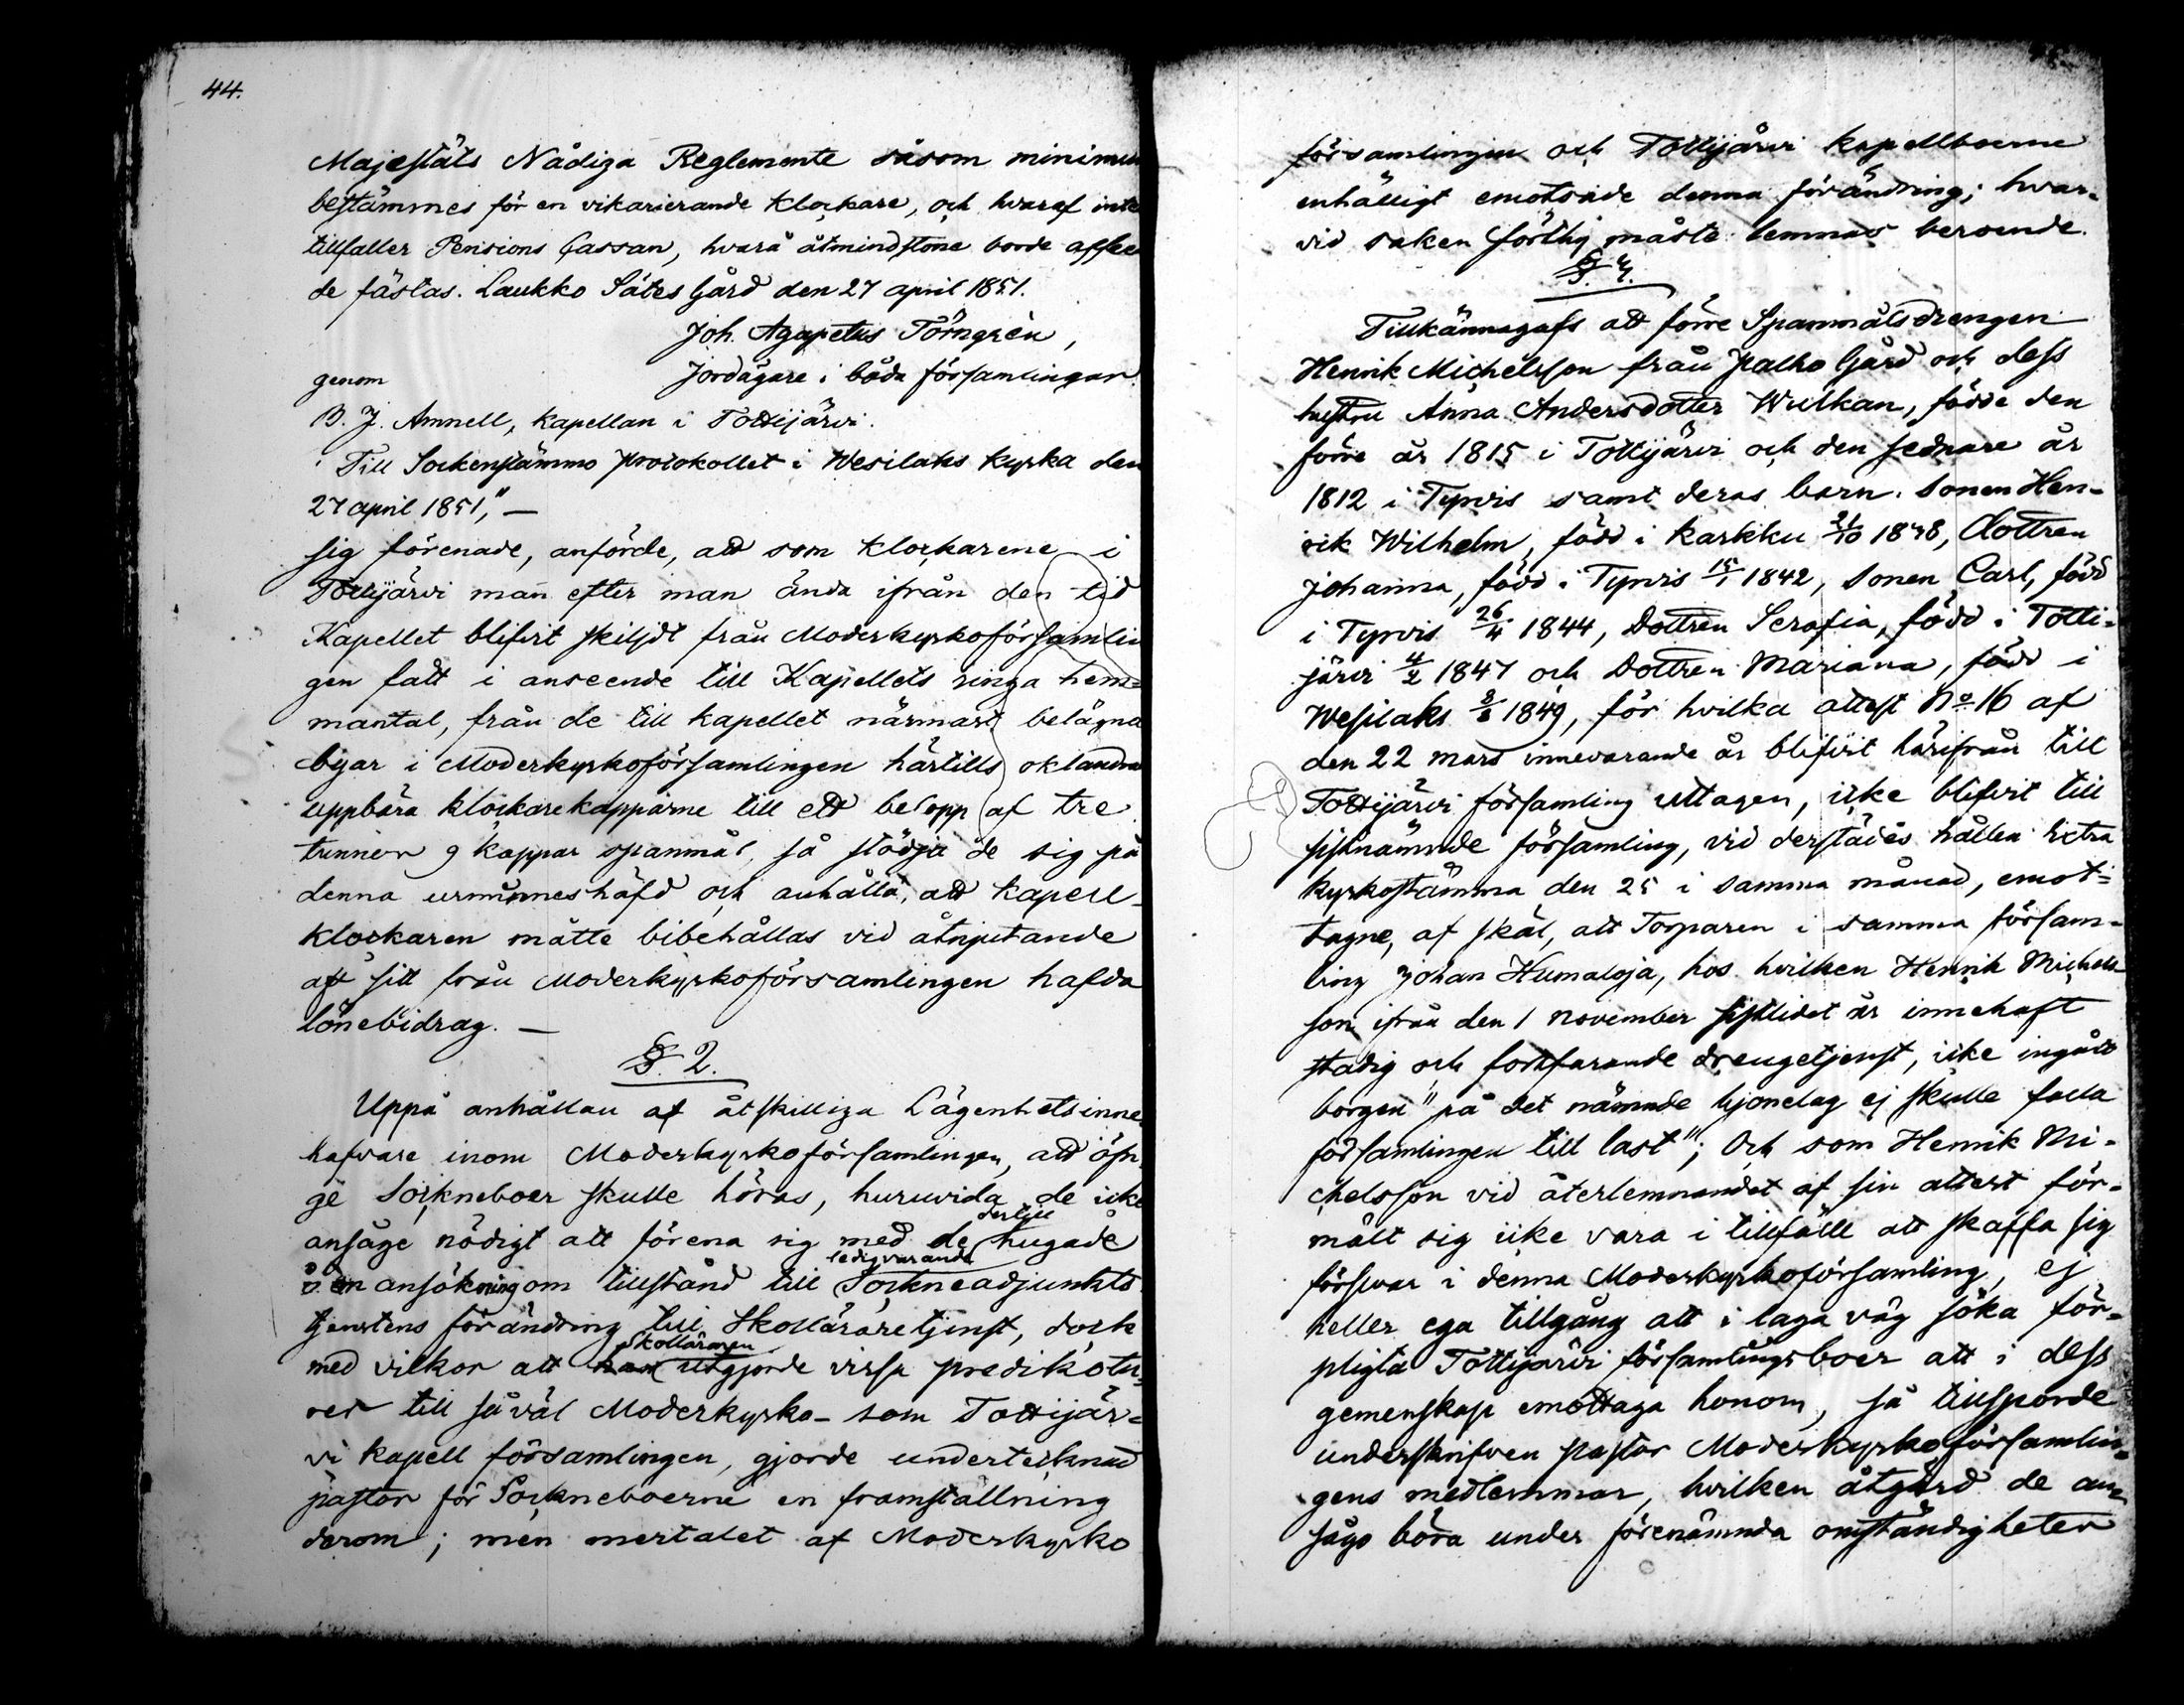 44.
Majestäts Nådiga Reglemente såsom minimum
bestämmes för en vikarierande Klockare, och hvaraf inte
tillfaller Pensions Cassan, hvarå åtmindstone borde afseen
de fästas. Laukko Sätes Gård den 27 april 1851.
Joh. Agapetus Törngrén,
genom Jordägare i båda församlingar.
B. J. Amnell, kapellan i Tottijärvi.
Till Sockenstämmo protokollet i Wesilaks kyrka den
27 april 1851," —
sig förenade, anförde, att som klockarene i
Tottijärvi man efter man ända ifrån den tid
Kapellet blifvit skiljdt från Moderkyrkoförsamlin
gen fått i anseende till Kapellets ringa hem-
mantal, från de till kapellet närmast belägna
byar i Moderkyrkoförsamlingen härtills oklandra
uppbära klockarekapparne till ett belopp af tre
tunnor 9 kappar spanmål, så stödja de sig på
denna urminneshäfd och anhålla, att kapell-
klockaren måtte bibehållas vid åtnjutande
af sitt från Moderkyrkoförsamlingen hafda
lönebidrag. —
§. 2.
Uppå anhållan af åtskilliga Lägenhetsinne
hafvare inom Moderkyrkoförsamlingen, att öfri
ge Sockneboer skulle höras, huruvida de icke
ansåge nödigt att förena sig med de dertill hugade
i en ansökning om tillstånd till ledigvarande Sockneadjunkts
tjenstens förändring till Skollärare tjenst, dock
med vilkor att Skolläraren utgjorde vissa predikotu-
rer till så väl Moderkyrko- som Tottijär-
vi kapell församlingen, gjorde undertecknad
pastor för Sockneboerne en framställning
derom; men mertalet af Moderkyrko
församlingen och Tottijärvi kapellboerne
enhälligt emotsade denna förändring; hvar-
vid saken förthy måste lemnas beroende.
§. 3.
Tillkännagafs att förre Spannmålsdrengen
Henrik Michelsson från Palho Gård och dess
hustru Anna Andersdotter Wulkan, födde den
förre år 1815 i Tottijärvi och den sednare år
1812 i Tyrvis samt deras barn. Sonen Hen-
rik Wilhelm, född i Karkku 21/10 1838, Dottren
Johanna, född i Tyrvis 15/1 1842, Sonen Carl, född
i Tyrvis 26/4 1844, Dottren Serafia, född i Totti-
järvi 4/2 1847 och Dottren Mariana, född i
Wesilaks 3/8 1849, för hvilka attest No 16 af
den 22 mars innevarande år blifvit härifrån till
Tottijärvi församling uttagen, icke blifvit till
sistnämnde församling, vid derstädes hållen extra
kyrkostämma den 25 i samma månad, emot-
tagne, af skäl, att Torparen i samma försam-
ling Johan Humaloja, hos hvilken Henrik Michels-
son ifrån den 1 november sistlidet år innehaft
stadig och fortfarande drengetjenst, icke ingått
borgen "på det nämnde hjonelag ej skulle falla
församlingen till last"; Och som Henrik Mi-
chelsson vid återlemnandet af sin attest för-
mält sig icke vara i tillfälle att skaffa sig
försvar i denna Moderkyrkoförsamling, ej
heller ega tillgång att i laga väg söka för-
pligta Tottijärvi församlingsboer att i dess
gemenskap emottaga honom, så tillsporde
underskrifven pastor Moderkyrkoförsamlin-
gens medlemmar, hvilken åtgärd de an-
sågo böra under förenämnda omständigheter